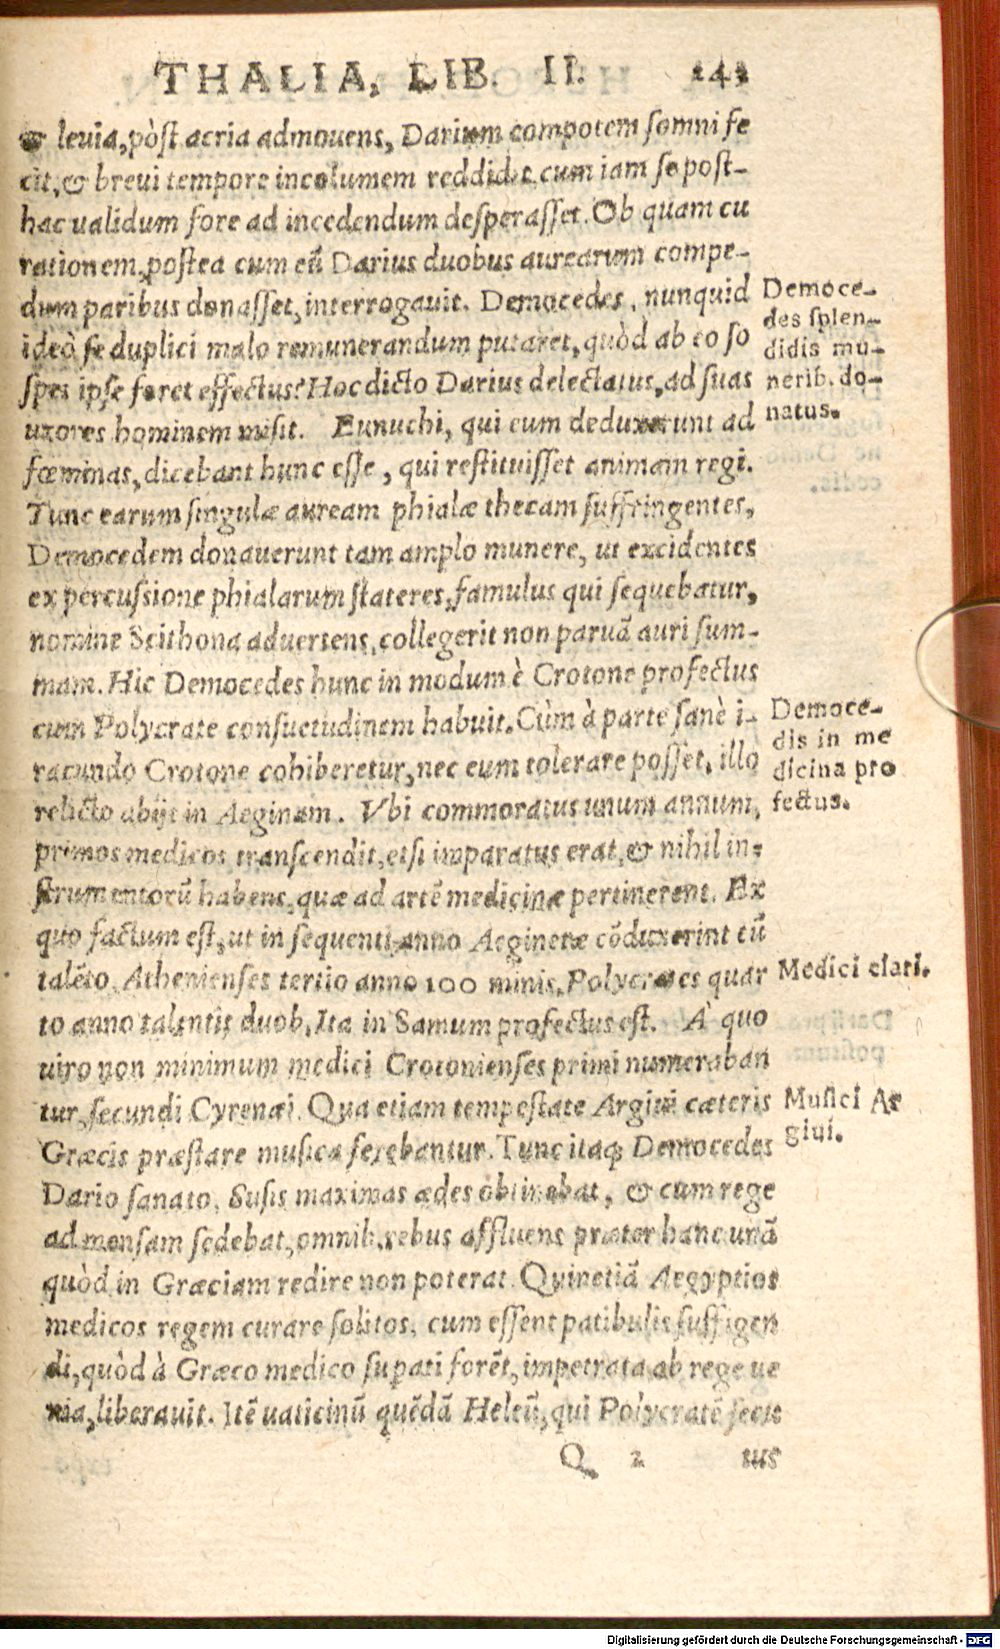 THALIA, LIB. II. 243
& leuia, pòst acria admouens, Darium compotem somni fe
cit, & breui tempore incolumem reddidit cum iam se post-
hac ualidum fore ad incedendum desperasset. Ob quam cu
rationem, postea cum eũ Darius duobus aurearum compe-
dum paribus donasset, interrogauit. Democedes, nunquid
ideò se duplici malo remunerandum putaret, quòd ab eo so
spes ipse foret effectus? Hoc dicto Darius delectatus, ad suas
uxores hominem misit. Eunuchi, qui eum deduxerunt ad
fœminas, dicebant hunc esse, qui restituisset animam regi.
Tunc earum singulæ auream phialæ thecam suffringentes,
Democedem donauerunt tam amplo munere, ut excidentes
ex percussione phialarum stateres, famulus qui sequebatur,
nomine Scithona aduertens, collegerit non paruã auri sum-
mam. Hic Democedes hunc in modum è Crotone profectus
cum Polycrate consuetudinem habuit. Cùm à parte sanè i-
racundo Crotone cohiberetur, nec eum tolerare posset, illo
relicto abijt in Aeginam. Vbi commoratus unum annum,
primos medicos transcendit, etsi imparatus erat, & nihil in-
strumentorũ habens, quæ ad artẽ medicinæ pertinerent. Ex
quo factum est, ut in sequenti anno Aeginetæ cõduxerint eũ
talẽto, Athenienses tertio anno 100 minis, Polycrates quar
to anno talentis duob. Ita in Samum profectus est. À quo
uiro non minimum medici Crotonienses primi numeraban
tur, secundi Cyrenæi. Qua etiam tempestate Argiui cæteris
Græcis præstare musica ferebantur. Tunc itaq; Democedes
Dario sanato, Susis maximas ædes obtinebat, & cum rege
ad mensam sedebat, omnib. rebus affluens præter hanc unã
quòd in Græciam redire non poterat. Quinetiã Aegyptios
medicos regem curare solitos, cum essent patibulis suffigen
di, quòd à Græco medico supati forẽt, impetrata ab rege ue
nia, liberauit. Itẽ uaticinũ quẽdã Heleũ, qui Polycratẽ secu
Q 2 tus
Democe-
des splen-
didis mu-
nerib. do-
natus.
Democe-
dis in me
dicina pro
fectus.
Medici clari.
Musici Ar
giui.
Digitalisierung gefördert durch die Deutsche Forschungsgemeinschaft - DFG